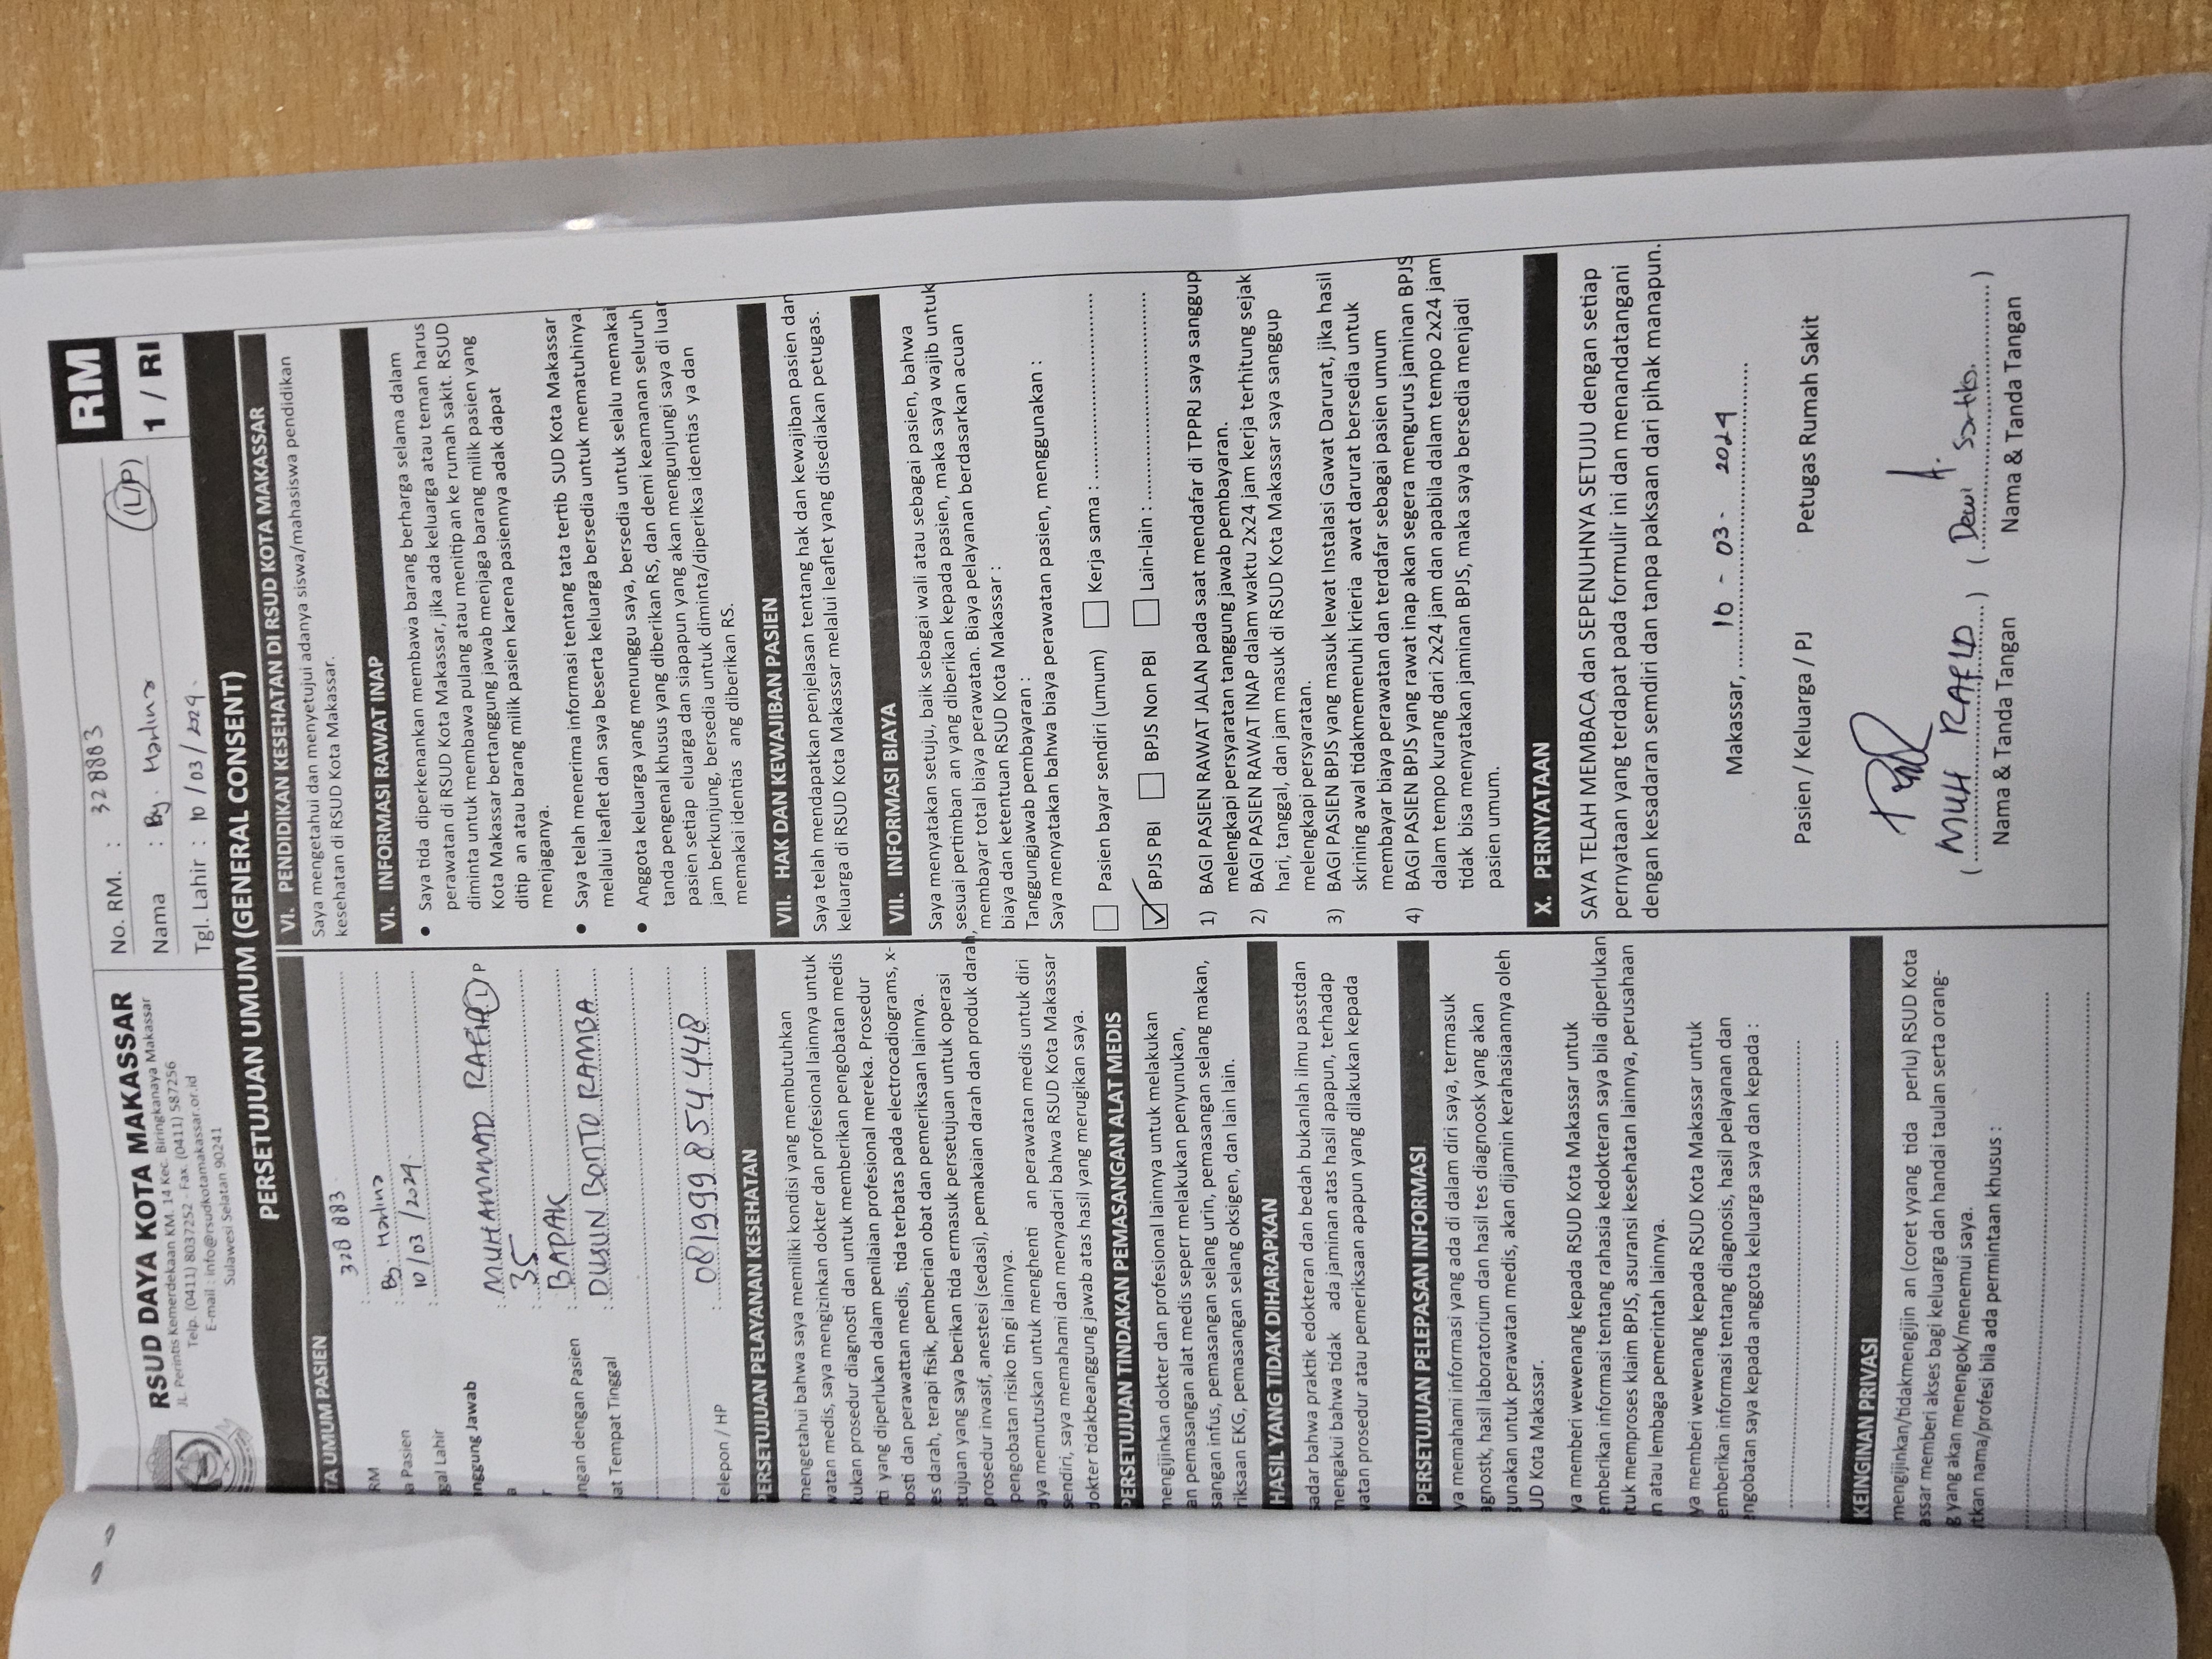 RSUD DAYA KOTA MAKASSAR
JL. Perintis Kemerdekaan KM. 14 Kec. Biringkanaya Makassar
Telp. (0411) 8037252 - Fax. (0411) 587256
E-mail : info@rsudkotamakassar.or.id
Sulawesi Selatan 90241
No. RM. : 328883
Nama : By. Harlina (L/P)
Tgl. Lahir : 10 / 03 / 2024.
RM
1 / RI
PERSETUJUAN UMUM (GENERAL CONSENT)
TA UMUM PASIEN
RM : 328 883.
a Pasien : By. Harlina
ggal Lahir : 10 / 03 / 2024.
nggung Jawab
a : MUHAMMAD RAFID L P
r : 35
ngan dengan Pasien : BAPAK
at Tempat Tinggal : DUSUN BONTO RAMBA
Telepon / HP : 081999854448
PERSETUJUAN PELAYANAN KESEHATAN
mengetahui bahwa saya memiliki kondisi yang membutuhkan
watan medis, saya mengizinkan dokter dan profesional lainnya untuk
kukan prosedur diagnosti dan untuk memberikan pengobatan medis
rti yang diperlukan dalam penilaian profesional mereka. Prosedur
osti dan perawattan medis, tida terbatas pada electrocadiograms, x-
es darah, terapi fisik, pemberian obat dan pemeriksaan lainnya.
etujuan yang saya berikan tida ermasuk persetujuan untuk operasi
prosedur invasif, anestesi (sedasi), pemakaian darah dan produk darah,
pengobatan risiko tin gi lainnya.
aya memutuskan untuk menghenti an perawatan medis untuk diri
sendiri, saya memahami dan menyadari bahwa RSUD Kota Makassar
dokter tidakbeanggung jawab atas hasil yang merugikan saya.
PERSETUJUAN TINDAKAN PEMASANGAN ALAT MEDIS
mengijinkan dokter dan profesional lainnya untuk melakukan
an pemasangan alat medis seperr melakukan penyunukan,
sangan infus, pemasangan selang urin, pemasangan selang makan,
riksaan EKG, pemasangan selang oksigen, dan lain lain.
HASIL YANG TIDAK DIHARAPKAN
sadar bahwa praktik edokteran dan bedah bukanlah ilmu pastdan
mengakui bahwa tidak ada jaminan atas hasil apapun, terhadap
vatan prosedur atau pemeriksaan apapun yang dilakukan kepada
PERSETUJUAN PELEPASAN INFORMASI
ya memahami informasi yang ada di dalam diri saya, termasuk
agnostk, hasil laboratorium dan hasil tes diagnoosk yang akan
gunakan untuk perawatan medis, akan dijamin kerahasiaannya oleh
UD Kota Makassar.
ya memberi wewenang kepada RSUD Kota Makassar untuk
emberikan informasi tentang rahasia kedokteran saya bila diperlukan
tuk memproses klaim BPJS, asuransi kesehatan lainnya, perusahaan
n atau lembaga pemerintah lainnya.
ya memberi wewenang kepada RSUD Kota Makassar untuk
emberikan informasi tentang diagnosis, hasil pelayanan dan
engobatan saya kepada anggota keluarga saya dan kepada :
KEINGINAN PRIVASI
mengijinkan/tidakmengijin an (coret yyang tida perlu) RSUD Kota
assar memberi akses bagi keluarga dan handai taulan serta orang-
g yang akan menengok/menemui saya.
tkan nama/profesi bila ada permintaan khusus :
VI. PENDIDIKAN KESEHATAN DI RSUD KOTA MAKASSAR
Saya mengetahui dan menyetujui adanya siswa/mahasiswa pendidikan
kesehatan di RSUD Kota Makassar.
VI. INFORMASI RAWAT INAP
• Saya tida diperkenankan membawa barang berharga selama dalam
perawatan di RSUD Kota Makassar, jika ada keluarga atau teman harus
diminta untuk membawa pulang atau menitip an ke rumah sakit. RSUD
Kota Makassar bertanggung jawab menjaga barang milik pasien yang
ditip an atau barang milik pasien karena pasiennya adak dapat
menjaganya.
• Saya telah menerima informasi tentang tata tertib SUD Kota Makassar
melalui leaflet dan saya beserta keluarga bersedia untuk mematuhinya.
• Anggota keluarga yang menunggu saya, bersedia untuk selalu memakai
tanda pengenal khusus yang diberikan RS, dan demi keamanan seluruh
pasien setiap eluarga dan siapapun yang akan mengunjungi saya di luar
jam berkunjung, bersedia untuk diminta/diperiksa identias ya dan
memakai identias ang diberikan RS.
VII. HAK DAN KEWAJIBAN PASIEN
Saya telah mendapatkan penjelasan tentang hak dan kewajiban pasien dan
keluarga di RSUD Kota Makassar melalui leaflet yang disediakan petugas.
VII. INFORMASI BIAYA
Saya menyatakan setuju, baik sebagai wali atau sebagai pasien, bahwa
sesuai pertimban an yang diberikan kepada pasien, maka saya wajib untuk
membayar total biaya perawatan. Biaya pelayanan berdasarkan acuan
biaya dan ketentuan RSUD Kota Makassar :
Tanggungjawab pembayaran :
Saya menyatakan bahwa biaya perawatan pasien, menggunakan :
Pasien bayar sendiri (umum) Kerja sama :
BPJS PBI BPJS Non PBI Lain-lain :
1) BAGI PASIEN RAWAT JALAN pada saat mendafar di TPPRJ saya sanggup
melengkapi persyaratan tanggung jawab pembayaran.
2) BAGI PASIEN RAWAT INAP dalam waktu 2x24 jam kerja terhitung sejak
hari, tanggal, dan jam masuk di RSUD Kota Makassar saya sanggup
melengkapi persyaratan.
3) BAGI PASIEN BPJS yang masuk lewat Instalasi Gawat Darurat, jika hasil
skrining awal tidakmemenuhi krieria awat darurat bersedia untuk
membayar biaya perawatan dan terdafar sebagai pasien umum
4) BAGI PASIEN BPJS yang rawat inap akan segera mengurus jaminan BPJS
dalam tempo kurang dari 2x24 jam dan apabila dalam tempo 2x24 jam
tidak bisa menyatakan jaminan BPJS, maka saya bersedia menjadi
pasien umum.
X. PERNYATAAN
SAYA TELAH MEMBACA dan SEPENUHNYA SETUJU dengan setiap
pernyataan yang terdapat pada formulir ini dan menandatangani
dengan kesadaran semdiri dan tanpa paksaan dari pihak manapun.
Makassar, 16 - 03 - 2024
Pasien / Keluarga / PJ Petugas Rumah Sakit
( MUH RAFLD ) ( Dewi Sartika. )
Nama & Tanda Tangan Nama & Tanda Tangan